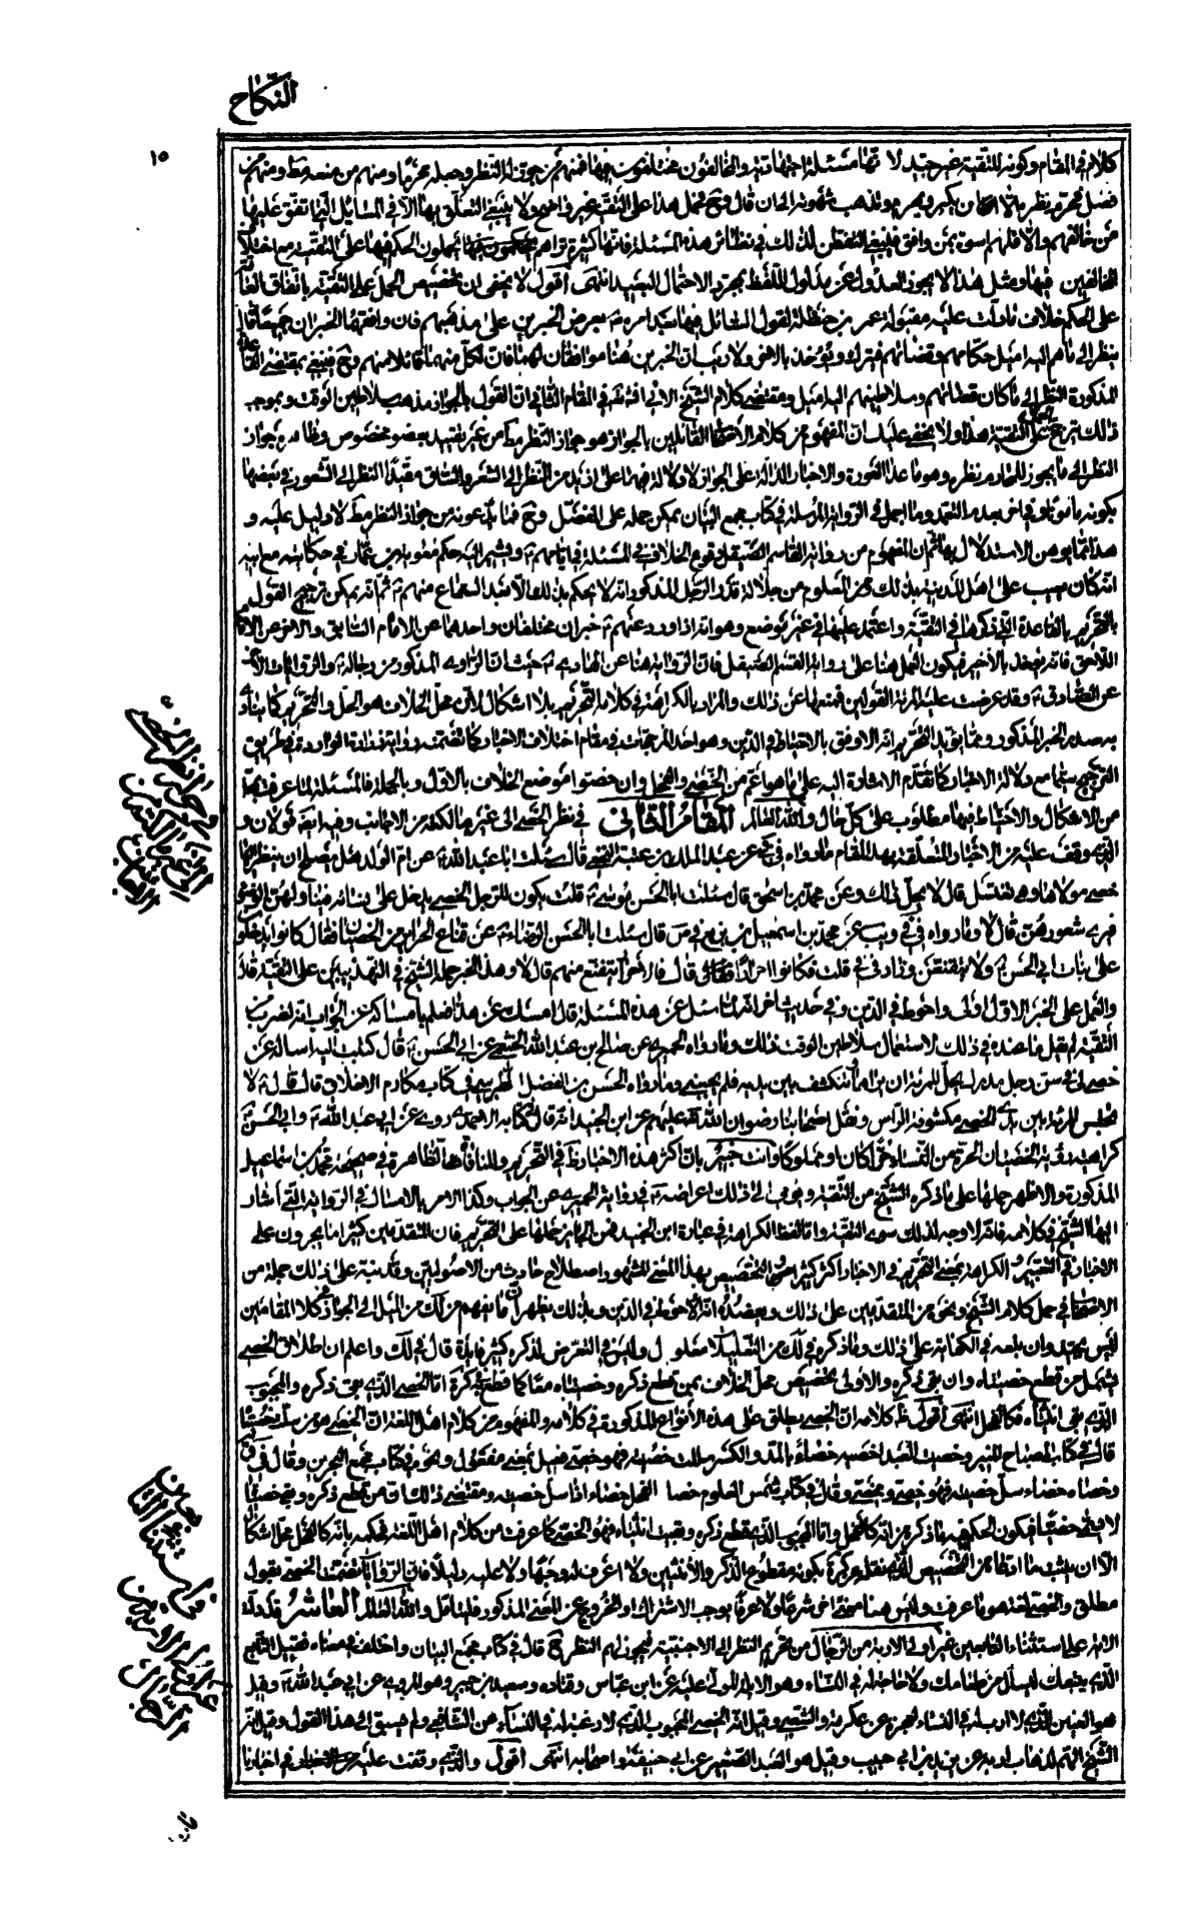 النكاح
١٥
كلامه في المقام وكونه للتقية غير جيد لا نها مسئلة اجتهادية والمخالفون مختلفون فيها فمنهم من جوز له النظر وجعله محرما ومنهم من منعه مط ومنهم من
فصل فحرم نظره الا ان يكبر ويهرم وتذهب شهوته الخ قال وح فحمل هذا على التقية غير واضح ولا ينبغي التعلق بها الا في المسائل التي اتفق عليها
من خالفهم والا فلهم اسوة بمن وافق فلينبغي التفطن لذلك في نظائر هذه المسئلة فانها كثيرة تراهم يحملون الحكم فيها على التقية مع اختلاف
المخالفين فيها ومثل هذا لا يجوز العدول عن مدلول اللفظ بمجرد الاحتمال البعيد انتهى اقول لا يخفى ان تخصيص الحمل على التقية باتفاق العامة
على الحكم خلاف ما دلت عليه مقبولة عمر بن حنظلة لقول السائل فيها بعد امره ع بعرض الخبرين على مذهبهم فان وافقهما الخبران جميعا قال
ينظر الى ما هم اليه اميل حكامهم وقضاتهم فيترك ويؤخذ بالاخر ولا ريب ان الخبرين هنا موافقان لهما فان لكل منهما قائلا منهم وح فينبغي بمقتضى القاعدة
المذكورة النظر الى ما كان قضاتهم وسلاطينهم اليه اميل ومقتضى كلام الشيخ الاتي في المقام الثاني ان القول بالجواز مذهب سلاطين الوقت وبموجب
ذلك ترجح الحمل على التقية هذا ولا يخفى عليك ان المفهوم من كلام الاصحاب القائلين بالجواز هو جواز النظر مط من غير تقييد بعضو مخصوص وظاهره جواز
النظر الى ما يجوز للمحارم نظره وهو ما عدا العورة والاخبار الدالة على الجواز لا دلالة فيها على ازيد من النظر الى الشعر والساق مقيدا النظر الى الشعور في بعضها
بكونه مأمونا وفي اخر بعدم التعمد وما اجمل في الرواية المرسلة في كتاب مجمع البيان يمكن حمله على المفصل وح فما يدعونه من جواز النظر مط لا دليل عليه و
هذا مما يوهن الاستدلال بها ثم ان المفهوم من رواية القاسم الصيقل وقوع الخلاف في المسئلة في ايامهم ع ويشير اليه حكم معوية بن عمار في حكايته مع ابيه
انه كان يعيب على اهل المدينة بذلك ومن المعلوم من جلالة قدر الرجل المذكور انه لا يحكم بذلك الا بعد السماع منهم ع ثم انه يمكن ترجيح القول
بالتحريم بالقاعدة التي ذكرها في التقية واعتمد عليها في غير موضع وهو انه اذا ورد عنهم ع خبران مختلفان واحدهما عن الامام السابق والاخر عن الامام
اللاحق فانه يؤخذ بالاخير فيكون العمل هنا على رواية القسم الصيقل فان الرواية هنا عن الهادي ع حيث ان الراوي المذكور من رجاله ع والروايات الاخر
عن الصادق ع وقد عرضت عليه المرئة القولين فمنعها عن ذلك والمراد بالكراهة في كلامه التحريم بلا اشكال لان محل الخلاف هو الحل والتحريم كما ينادي
به صدر الخبر المذكور ومما يؤيد التحريم انه الاوفق بالاحتياط في الدين وهو احد المرجحات في مقام اختلاف الاخبار كما تضمنته رواية زرارة الواردة في طريق
الترجيح سيما مع دلالة الاخبار كما تقدم الاشارة اليه على ما هو اعم من الخصي والفحل وان خصوا موضع الخلاف بالاول وبالجملة فالمسئلة لما عرفت محل
من الاشكال والاحتياط فيها مطلوب على كل حال والله العالم المقام الثاني في نظر الخصي الى غير مالكته من الاجانب وفيه ايضا قولان و
الذي وقفت عليه من الاخبار المتعلقة بهذا المقام ما رواه في في عن عبد الملك بن عتبة النخعي قال سئلت ابا عبد الله ع عن ام الولد هل يصلح ان ينظر اليها
خصي مولاها وهي تغتسل قال لا يحل ذلك وعن محمد بن اسحق قال سئلت ابا الحسن موسى ع قلت يكون للرجل الخصي يدخل على نسائه فيناولهن الوضوء
فيرى شعورهن قال لا وما رواه في في ويب عن محمد بن اسمعيل بن بزيع في ص قال سئلت ابا الحسن الرضا ع عن قناع الحراير من الخصيان فقال كانوا يدخلون
على بنات ابي الحسن ع ولا يتقنعن وزاد في في قلت فكانوا احرارا فقال لا قال قلت فالاحرار يتقنع منهم قال لا وهذا الخبر حمله الشيخ في التهذيبين على التقية قال
والعمل على الخبر الاول اولى واحوط في الدين وفي حديث اخر انه لما سئل عن هذه المسئلة قال امسك عن هذا فعلم بامساكه عن الجواب انه لضرب
من التقية لم يقل ما عنده في ذلك لاستعمال سلاطين الوقت ذلك وما رواه الحميري عن صالح بن عبد الله الخثعمي عن ابي الحسن ع قال كتبت اليه اسأله عن
خصي لي في سن رجل مدرك يحل للمرئة ان يراها وتنكشف بين يديه فلم يجبني وما رواه الحسن بن الفضل الطبرسي في كتاب مكارم الاخلاق قال قال ع لا
تجلس المرئة بين يدي الخصي مكشوفة الرأس ونقل اصحابنا رضوان الله تعالى عليهم عن ابن الجنيد انه قال في كتابه الاحمدي روي عن ابي عبد الله ع وابي الحسن ع
كراهة رؤية الخصيان الحرة من النساء حرا كان او مملوكا وانت خبير بان اكثر هذه الاخبار ظ في التحريم والمنافي لها ظاهرة في صحيحة محمد بن اسماعيل
المذكورة والاظهر حملها على ما ذكره الشيخ من التقية ويومي الى ذلك اعراضه ع في رواية الحميري عن الجواب وكذا الامر بالامساك في الرواية التي اشار
اليها الشيخ في كلامه فانه لا وجه لذلك سوى التقية واما لفظ الكراهة في عبارة ابن الجنيد فمن الجايز حملها على التحريم فان المتقدمين كثيرا ما يجرون على
الاخبار في التعبير والكراهة بمعنى التحريم في الاخبار اكثر كثير والتخصيص بهذا المعنى المشهور اصطلاح حادث من الاصوليين وقرينة على ذلك جملة من
الاصحاب في حمل كلام الشيخ ونحوه من المتقدمين على ذلك ويعضده انه الاحوط في الدين وبذلك يظهر ان ما يفهم من لك من الميل الى الجواز في كلا المقامين
ليس بجيد وان بلغه في الكفاية على ذلك وما ذكره في لك من التعليلات معلول وليس في التعرض لذكره كثير فايدة قال في لك واعلم ان اطلاق الخصي
يشمل من قطع خصيتاه وان بقي ذكره والاولى تخصيص محل الخلاف بمن قطع ذكره وخصيتاه معا كما قطع به كرة اما الخصي الذي بقي ذكره والمجبوب
الذي بقي انثياه فكالفحل انتهى اقول ظ كلامه ان الخصي يطلق على هذه الانواع المذكورة في كلامه والمفهوم من كلام اهل اللغة ان الخصي هو من سلت خصيتاه
قال في كتاب المصباح المنير وخصيت العبد اخصيه خصاء بالمد والكسر سللت خصييه فهو خصي فعيل بمعنى مفعول ونحوه في كتاب مجمع البحرين وقال في ق
وخصاه خصاء سل خصييه فهو خصي ومخصي وقال في كتاب شمس العلوم خصا الفحل خصاء اذا سل خصييه ومقتضى ذلك ان من قطع ذكره وبقي خصيتاه
لا يسمى خصيا فيكون الحكم فيه ما ذكره من انه كالفحل واما المجبوب الذي يقطع ذكره وبقيت انثياه فهو الخصي كما عرفت من كلام اهل اللغة فحكمه بانه كالفحل محل اشكال
الا ان يثبت ما ادعاه من التخصيص الذي نقله عن كرة بكونه مقطوع الذكر والانثيين ولا اعرف له وجها ولا عليه دليلا فان الروايات تضمنت الخصي بقول
مطلق والخصي لغة هو ما عرفت وليس هنا معنى اخر شرعا ولا عرفا يوجب الاشتراك او الخروج عن المعنى المذكور فليتأمل والله العالم العاشر قد دلت
الاية على استثناء التابعين غير اولى الاربة من الرجال من تحريم النظر الى الاجنبية فيجوز لهم النظر ح قال في كتاب مجمع البيان واختلف في معناه فقيل التابع
الذي يتبعك لينال من طعامك ولا حاجة له في النساء وهو الابله المولى عليه عن ابن عباس وقتاده وسعيد بن جبير وهو المروي عن ابي عبد الله ع وقيل
هو العنين الذي لا ارب له في النساء لعجزه عن عكرمة والشعبي وقيل انه الخصي المجبوب الذي لا رغبة له في النساء عن الشافعي ولم يسبق الى هذا القول وقيل انه
الشيخ الهم لذهاب اربه عن يزيد بن ابي حبيب وقيل هو العبد الصغير عن ابي حنيفة واصحابه انتهى اقول والذي وقفت عليه من الاخبار في اخبارنا